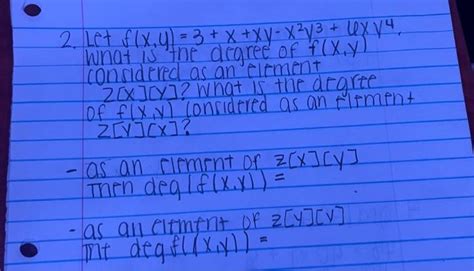 2. Let f(x,y) = 3 + x + xy - x²y³ + 6xy⁴.
What is the degree of f(x,y)
considered as an element
Z[X][Y]? What is the degree
of f(x,y) considered as an element
Z[Y][X]?
- as an element of Z[X][Y]
Then deg(f(x,y)) =
- as an element of Z[Y]
deg f((x,y)) =